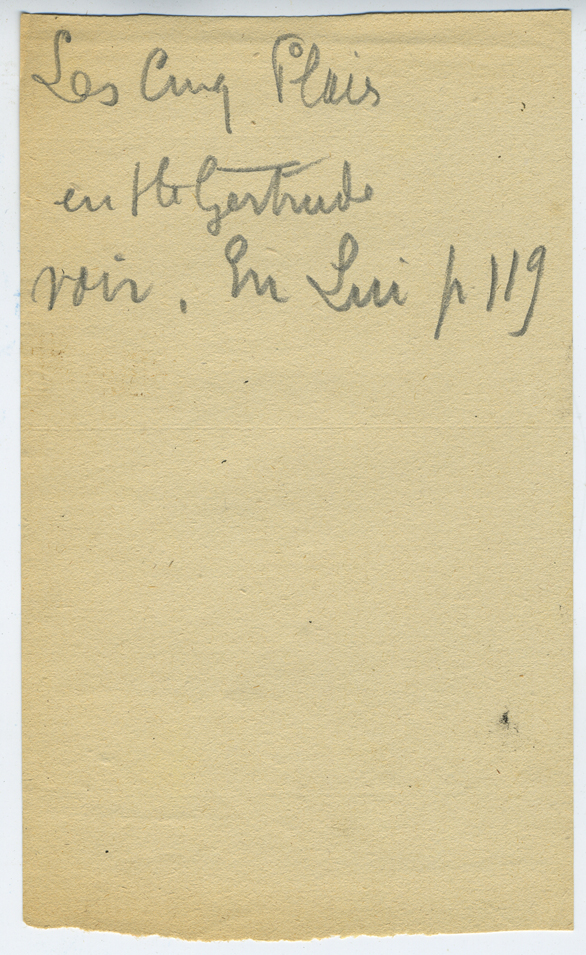 Les Cinq Plais
en Ste Gertrude
voir. En Lui p 119